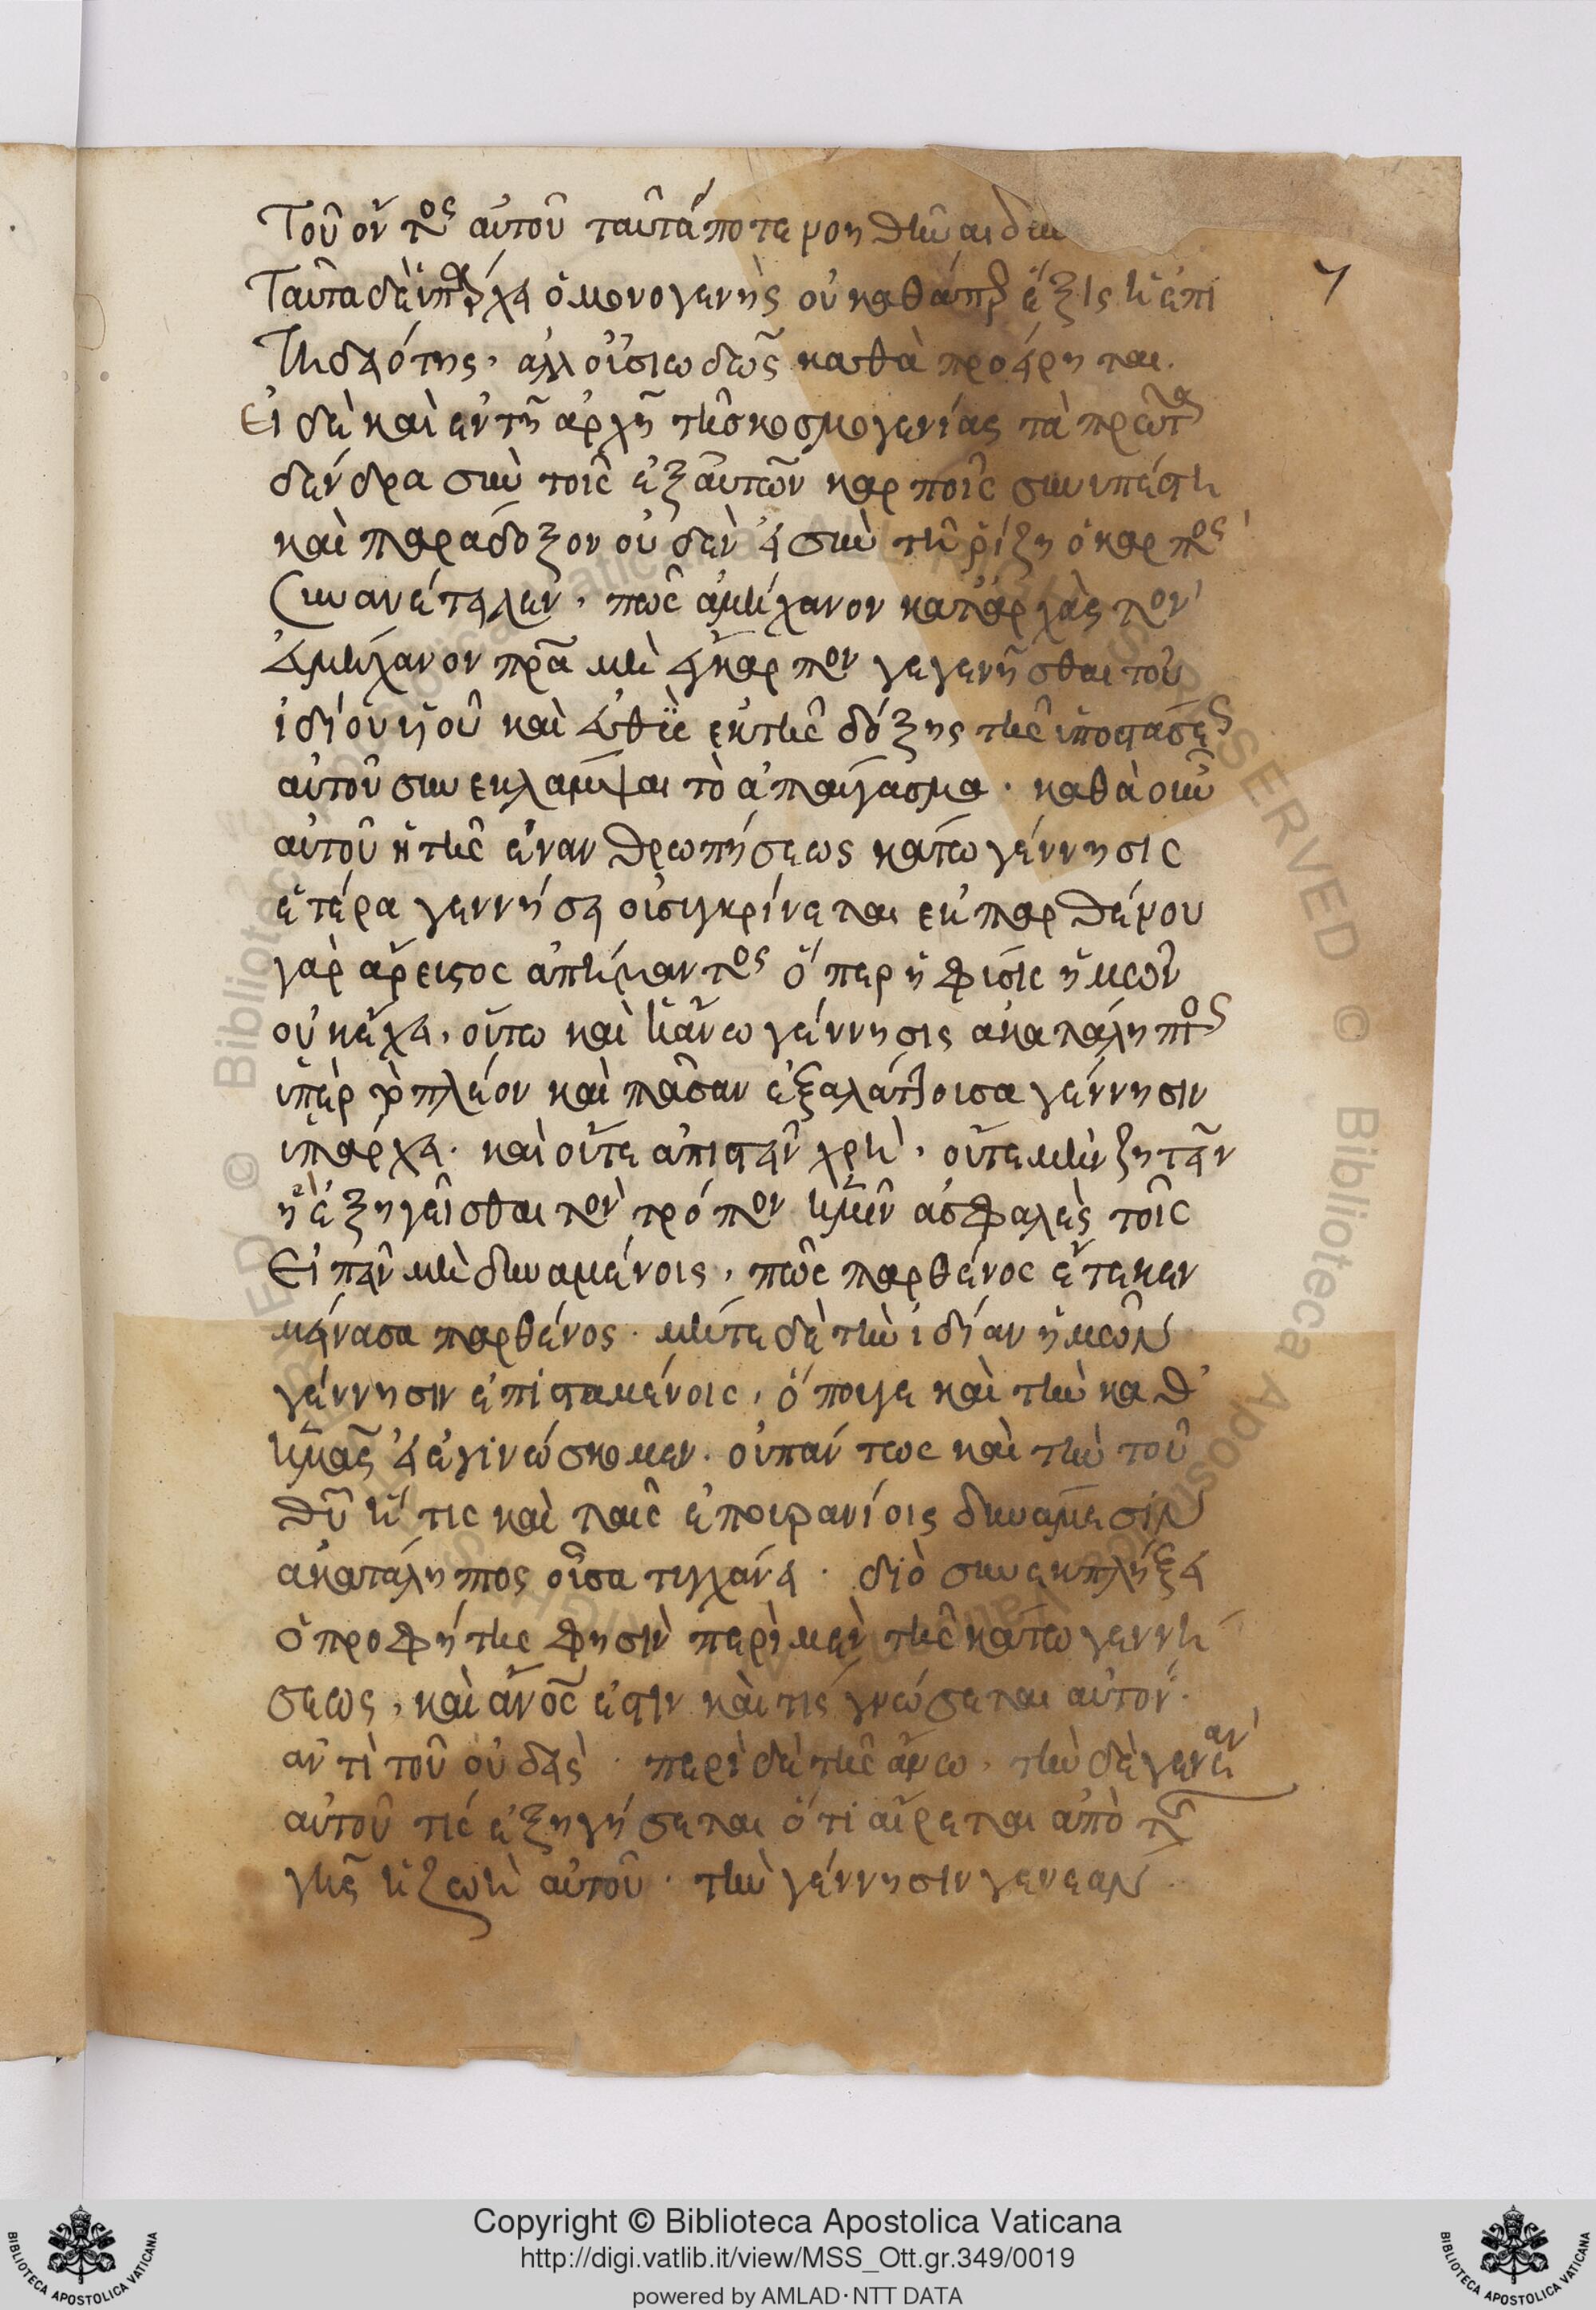 Τοῦ ὄντος αὐτοῦ ταῦτά ποτε
Ταῦτα δὲ ὑπάρχει ὁ μονογενὴς οὐ καθάπερ ἕξις ἢ ἐπι
τηδειότης, ἀλλ οὐσιωδῶς καθὰ προείρηται.
Εἰ δὲ καὶ ἐν τῇ ἀρχῇ τῆς κοσμογενίας τὰ πρῶτα
δένδρα σὺν τοῖς ἐξ αὐτῶν καρποῖς συνυπέστη
καὶ παράδοξον οὐδὲν εἰ σὺν τῇ ῥίζῃ ὁ καρπὸς
συνανέτειλεν, πῶς ἀμήχανον καταρχὰς τὸν
ἀμήχανον πρα μὴ ἄκαρπον γεγενῆσθαι τοῦ
ἰδίου υἱοῦ καὶ εὐθὺς ἐκ τῆς δόξης τῆς ὑποστάσεως
αὐτοῦ συνεκλάμψαι τὸ ἀπαύγασμα. καθὰ οὖν
αὐτοῦ ἡ τῆς ἐνανθρωπήσεως κάτω γέννησις
ἑτέρα γεννήσει οὐ συγκρίνεται ἐκ παρθένου
γὰρ ἄρευστος ἀπήμαντος ὅπερ ἡ φύσις ἡμῶν
οὐκ ἔχει, οὕτω καὶ ἡ ἄνω γέννησις ἀκατάληπτος
ὑπὲρ τὸ πλέον καὶ πᾶσαν ἐξαλάττουσα γέννησιν
ὑπάρχει. καὶ οὔτε ἀπιστεῖν χρὴ, οὔτε μὴν ζητεῖν
ἢ ἐξηγεῖσθαι τὸν τρόπον ἡμῖν ἀσφαλὲς τοῖς
Εἰπεῖν μὴ δυναμένοις, πῶς παρθένος ἔτεκεν
μείνασα παρθένος. μήτε δὲ τὴν ἰδίαν ἡμῶν
γέννησιν ἐπισταμένοις, ὅπουγε καὶ τὴν καθ
ἡμᾶς εἰ ἐγινώσκομεν. οὐ πάντως καὶ τὴν τοῦ
θυ ἥτις καὶ ταῖς ἐπουρανίοις δυνάμεσιν
ἀκατάληπτος οὖσα τυγχάνει. διὸ συνεκπλήξει
ὁ προφήτης φησὶν περὶ μὲν τῆς κάτω γεννή
σεως, καὶ ἄνος ἐστιν καὶ τίς γνώσεται αὐτόν.
ἀντὶ τοῦ οὐδεὶς. περὶ δὲ τῆς ἄνω, τὴν δὲ γενεὰν
αὐτοῦ τίς ἐξηγήσεται ὅτι αἴρεται ἀπὸ τῆς
γῆς ἡ ζωὴ αὐτοῦ. τὴν γέννησιν γενεαν
7
Copyright © Biblioteca Apostolica Vaticana
http://digi.vatlib.it/view/MSS_Ott.gr.349/0019
powered by AMLAD·NTT DATA
BIBLIOTECA APOSTOLICA VATICANA
BIBLIOTECA APOSTOLICA VATICANA